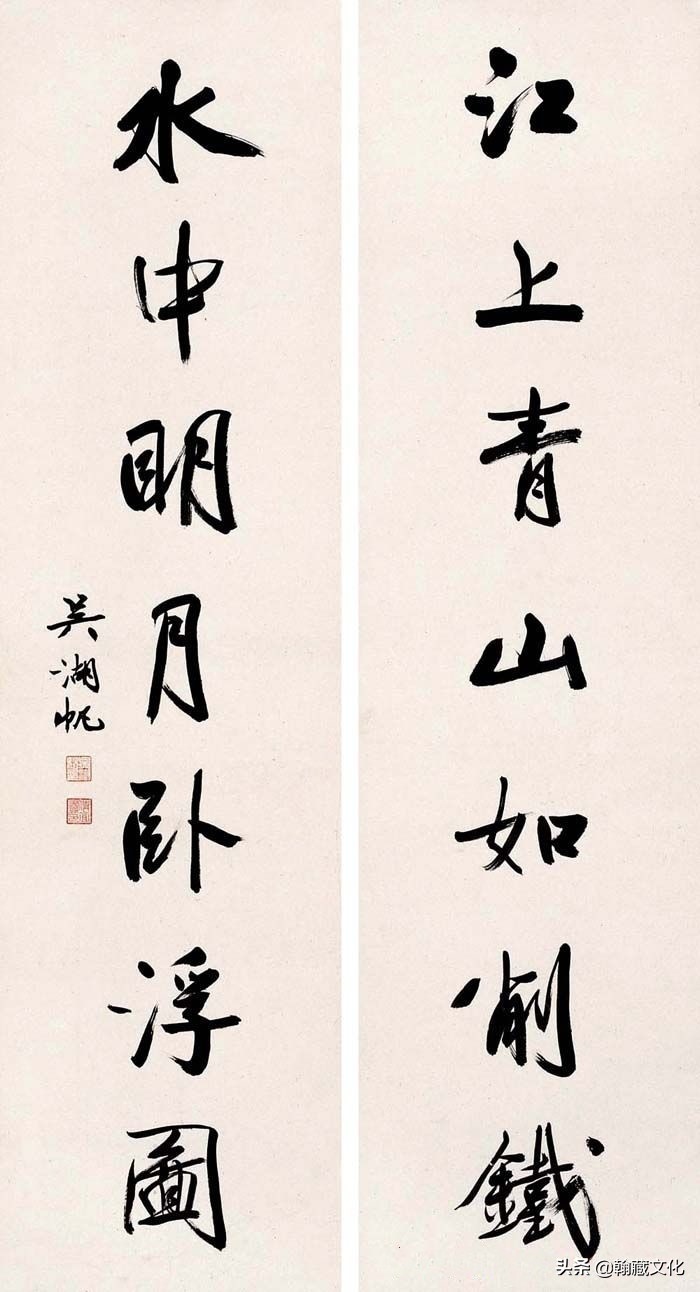 江上青山如削鐵
水中明月卧浮圖
吳湖帆
头条 @翰藏文化